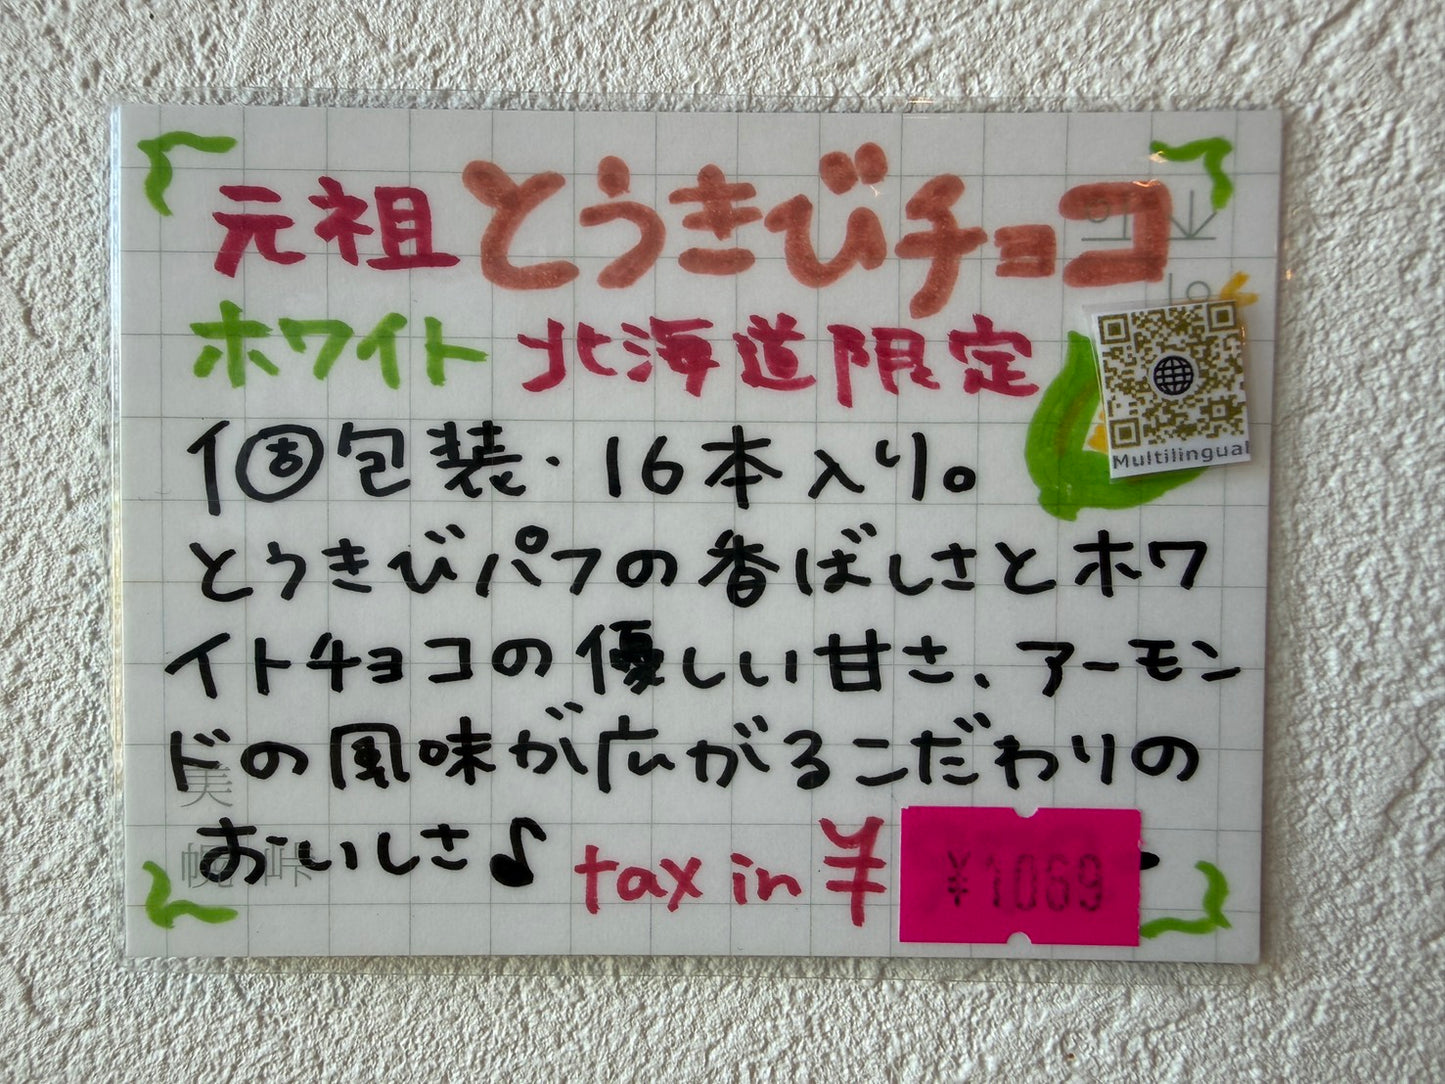 元祖とうきびチョコ
ホワイト 北海道限定
Multilingual
個包装・16本入り。
とうきびパフの香ばしさとホワ
イトチョコの優しい甘さ、アーモン
ドの風味が広がるこだわりの
おいしさ♪ tax in ¥
¥1,069